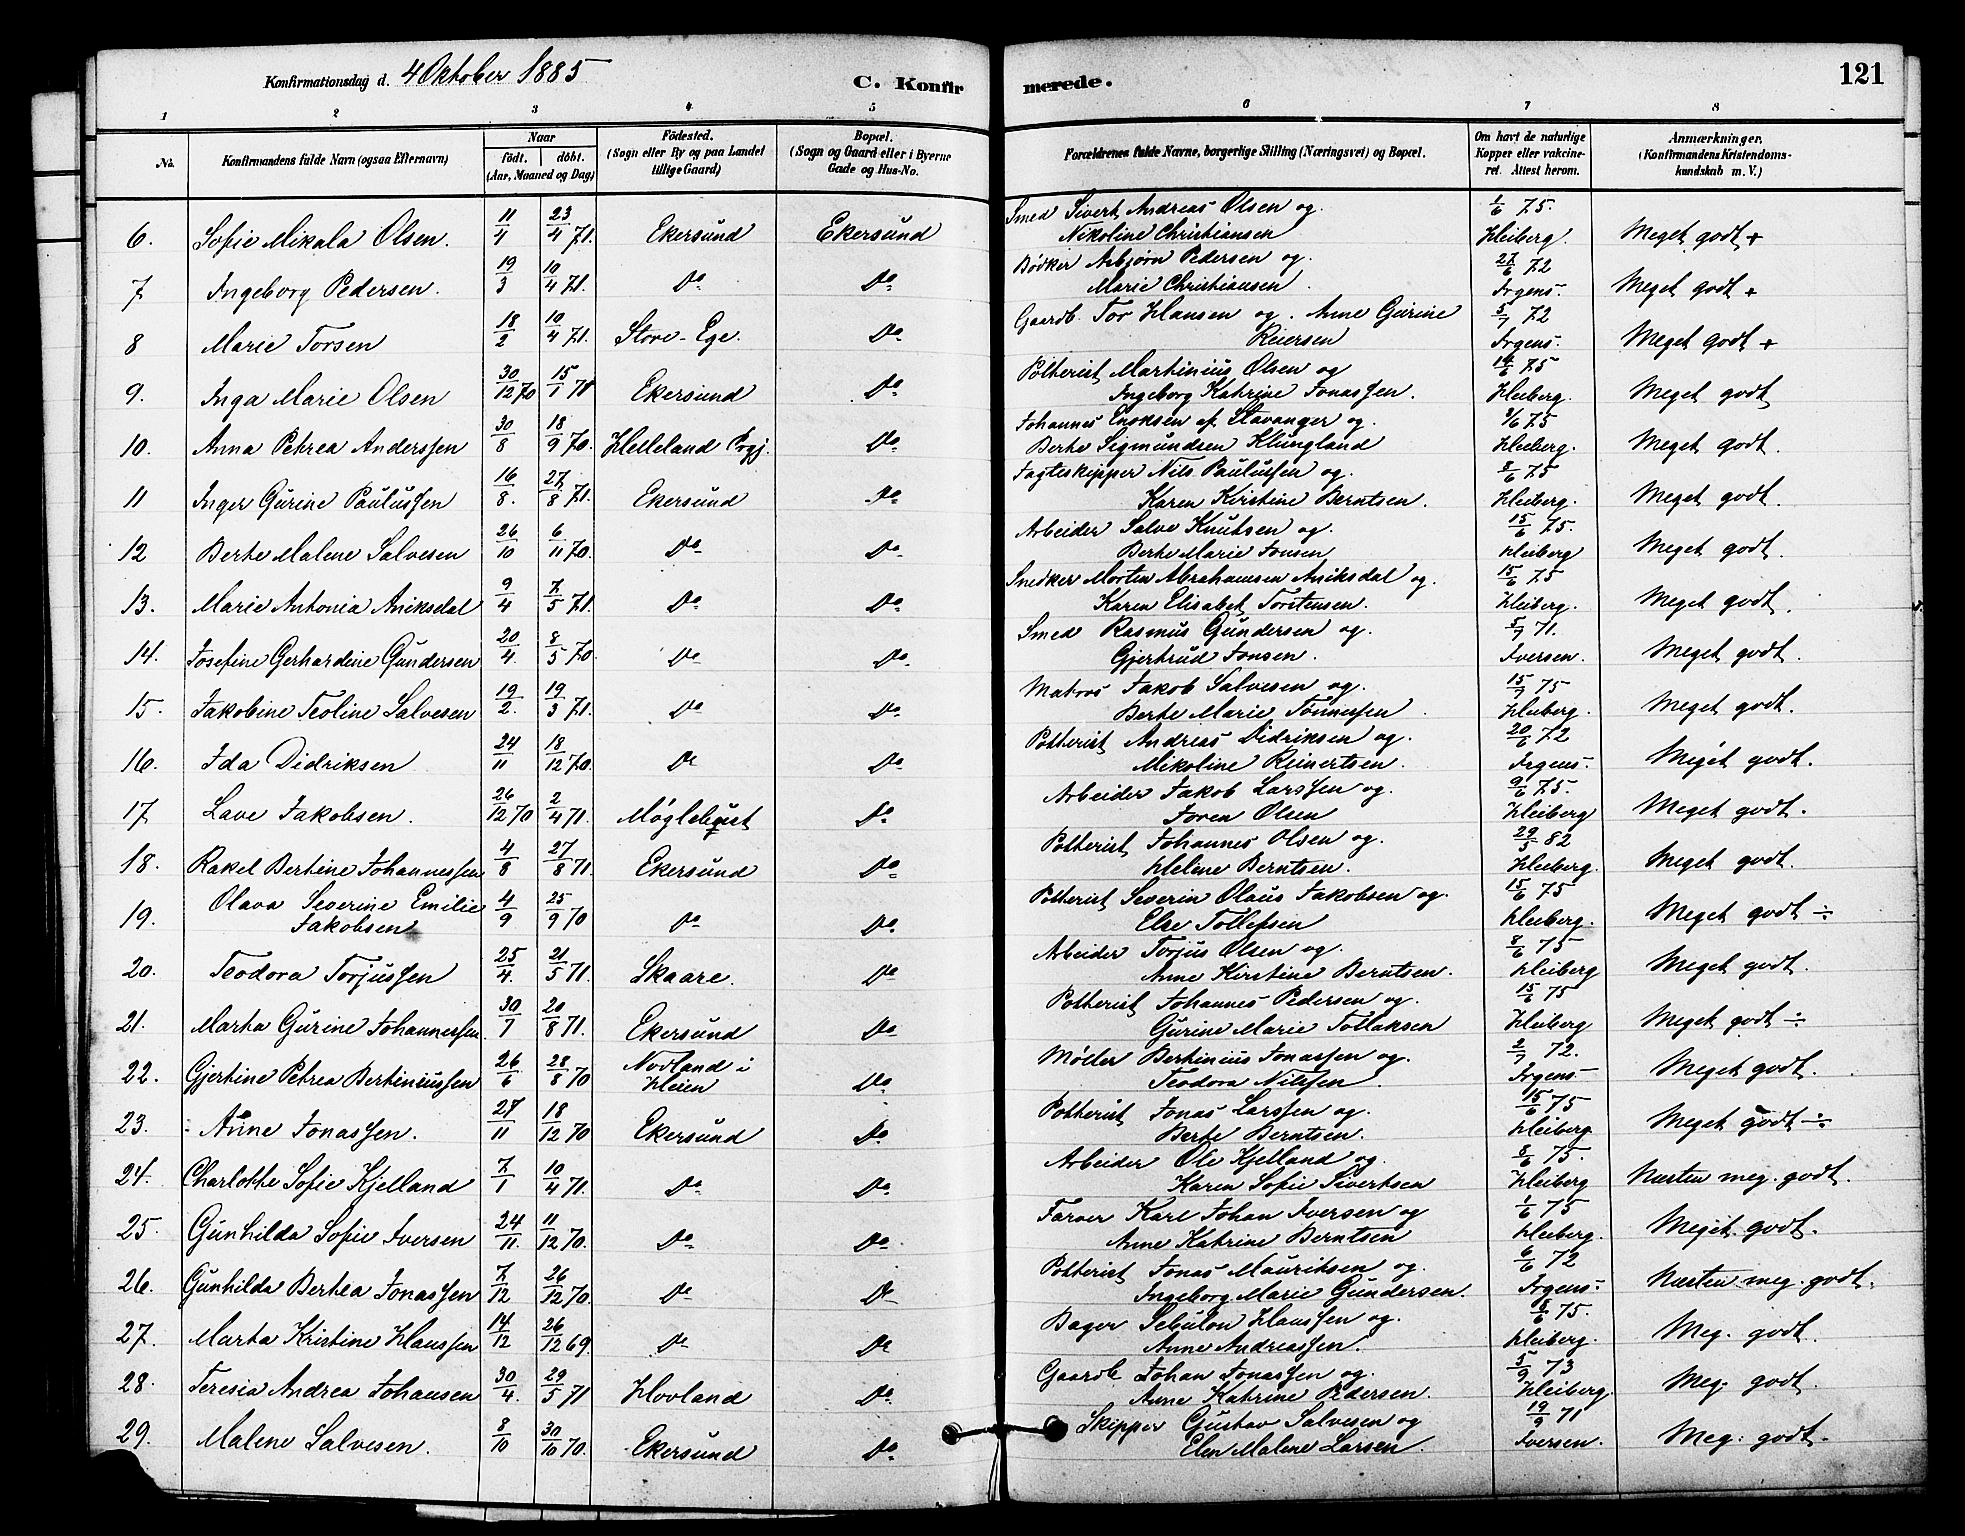 Konfirmationsdag d. 4 Oktober 1885 C. Konfirmerede. 121
1 2 3 4 5 6 7 8
No. Konfirmandens fulde Navn (ogsaa Efternavn) Naar födt. döbt. (Aar, Maaned og Dag) Födested. (Sogn eller By og paa Landet tillige Gaard) Bopæl. (Sogn og Gaard eller i Byerne Gade og Hus-No. Forældrenes fulde Navne, borgerlige Stilling (Næringsvei) og Bopæl. Om havt de naturlige Kopper eller vakcineret. Attest herom. Anmærkninger. (Konfirmandens Kristendomskundskab m. V.)
6. Sofie Mikala Olsen. 11/4 23/4 71. Ekersund Ekersund Smed Sivert Andreas Olsen og Nikoline Christiansen 1/6 75. Heiberg. Meget godt +
7 Ingeborg Pedersen. 19/3 10/4 71. Do Do Bødker Asbjørn Pedersen og Marie Christiansen. 27/6 72 Irgens. Meget godt +
8 Marie Torsen 18/2 10/4 71. Store-Ege. Do Gaardb. Tor Hansen og Anne Gurine Reiersen 5/7 72 Irgens. Meget godt +
9. Inga Marie Olsen 30/12 70 15/1 71 Ekersund Do Potterist Martinius Olsen og Ingeborg Katrine Jonassen. 14/6 75 Heiberg. Meget godt
10. Anna Petrea Anderssen 30/8 18/9 70. Helleland Prgj. Do Johannes Enoksen af Stavanger og Berte Sigmundsen Klungland 3/6 75 Heiberg. Meget godt.
11 Inger Gurine Paulussen 16/8. 27/8 71. Ekersund Do Jagteskipper Nils Paulussen og Karen Kirstine Berntsen. 8/6 75 Heiberg. Meget godt.
12 Berte Malene Salvesen 26/10 6/11 70. Do Do Arbeider Salve Knutsen og Berte Marie Jonsen 15/6 75. Heiberg Meget godt.
13. Marie Antonia Aniksdal 9/4 7/5 71. Do Do Snedker Morten Abrahamsen Aniksdal og Karen Elisabet Torstensen. 15/6 75 Heiberg. Meget godt.
14. Josefine Gerhardine Gundersen 20/4. 8/5 70. Do Do Smed Rasmus Gundersen og Gjertrud Jonsen. 5/7 71. Iversen. Meget godt.
15. Jakobine Teoline Salvesen 19/2. 19/3 71. Do Do Matros Jakob Salvesen og Berte Marie Tønnessen. 15/7 75 Heiberg. Meget godt.
16. Ida Didriksen 24/11 18/12 70. Do Do Potterist Andreas Didriksen og Mikoline Reinertsen. 20/6 72 Irgens. Meget godt.
17 Lave Jakobsen. 26/12 70 2/4 71. Møglebust Do Arbeider Jakob Larssen og Joren Olsen 9/6 75. Heiberg Meget godt.
18. Rakel Bertine Johannessen 4/8 27/8 71. Ekersund Do Potterist Johannes Olsen og Helene Berntsen. 29/5 82 Heiberg. Meget godt.
19. Olava Severine Emilie Jakobsen 4/9 25/9 70 Do Do Potterist Severin Olaus Jakobsen og Else Tollefsen 15/6 75 Heiberg. Meget godt ÷
20. Teodora Torjussen 25/4. 21/5 71. Skaare. Do Arbeider Torjus Olsen og Anne Kirstine Berntsen. 8/6 75 Heiberg Meget godt.
21. Marta Gurine Johannessen 30/7 20/8 71. Ekersund Do Potterist Johannes Pedersen og Gurine Marie Tollaksen 15/6 75 Heiberg Meget godt ÷
22. Gjertine Petrea Bertiniussen 26/6 28/8 70 Nodland i Heien Do Møller Bertinius Jonassen og Teodora Nilssen. 2/7 72. Irgens Meget godt.
23. Anne Jonassen. 27/11 18/12 70 Ekersund Do Potterist Jonas Larssen og Berte Berntsen. 15/6 75 Heiberg Meget godt ÷
24. Charlotte Sofie Kjelland 7/1 10/4 71. Do Do Arbeider Ole Kjelland og Karen Sofie Sivertsen 8/6 75. Heiberg Næsten meg. godt.
25. Gunhilda Sofie Iversen 24/11. 11/12 70. Do Do Farver Karl Johan Iversen og Anne Katrine Berntsen 1/6 75 Heiberg. Meget godt.
26. Gunhilda Bertea Jonassen 7/12 26/12 70. Do Do Potterist Jonas Mauritsen og Ingeborg Marie Gundersen. 6/6 72 Irgens. Næsten meg. godt.
27. Marta Kristine Hanssen 14/12 26/12 69. Do Do Bager Sebulon Hanssen og Anne Andreassen. 8/6 75. Heiberg. Meg. godt.
28. Teresia Andrea Johansen 30/4. 29/5 71 Hovland Do Gaardb Johan Jonassen og Anne Katrine Pedersen. 5/9 73 Heiberg. Meg. godt.
29. Malene Salvesen. 8/10 30/10 70. Ekersund Do Skipper Gustav Salvesen og Elen Malene Larsen. 19/9 71 Iversen. Meg. godt.